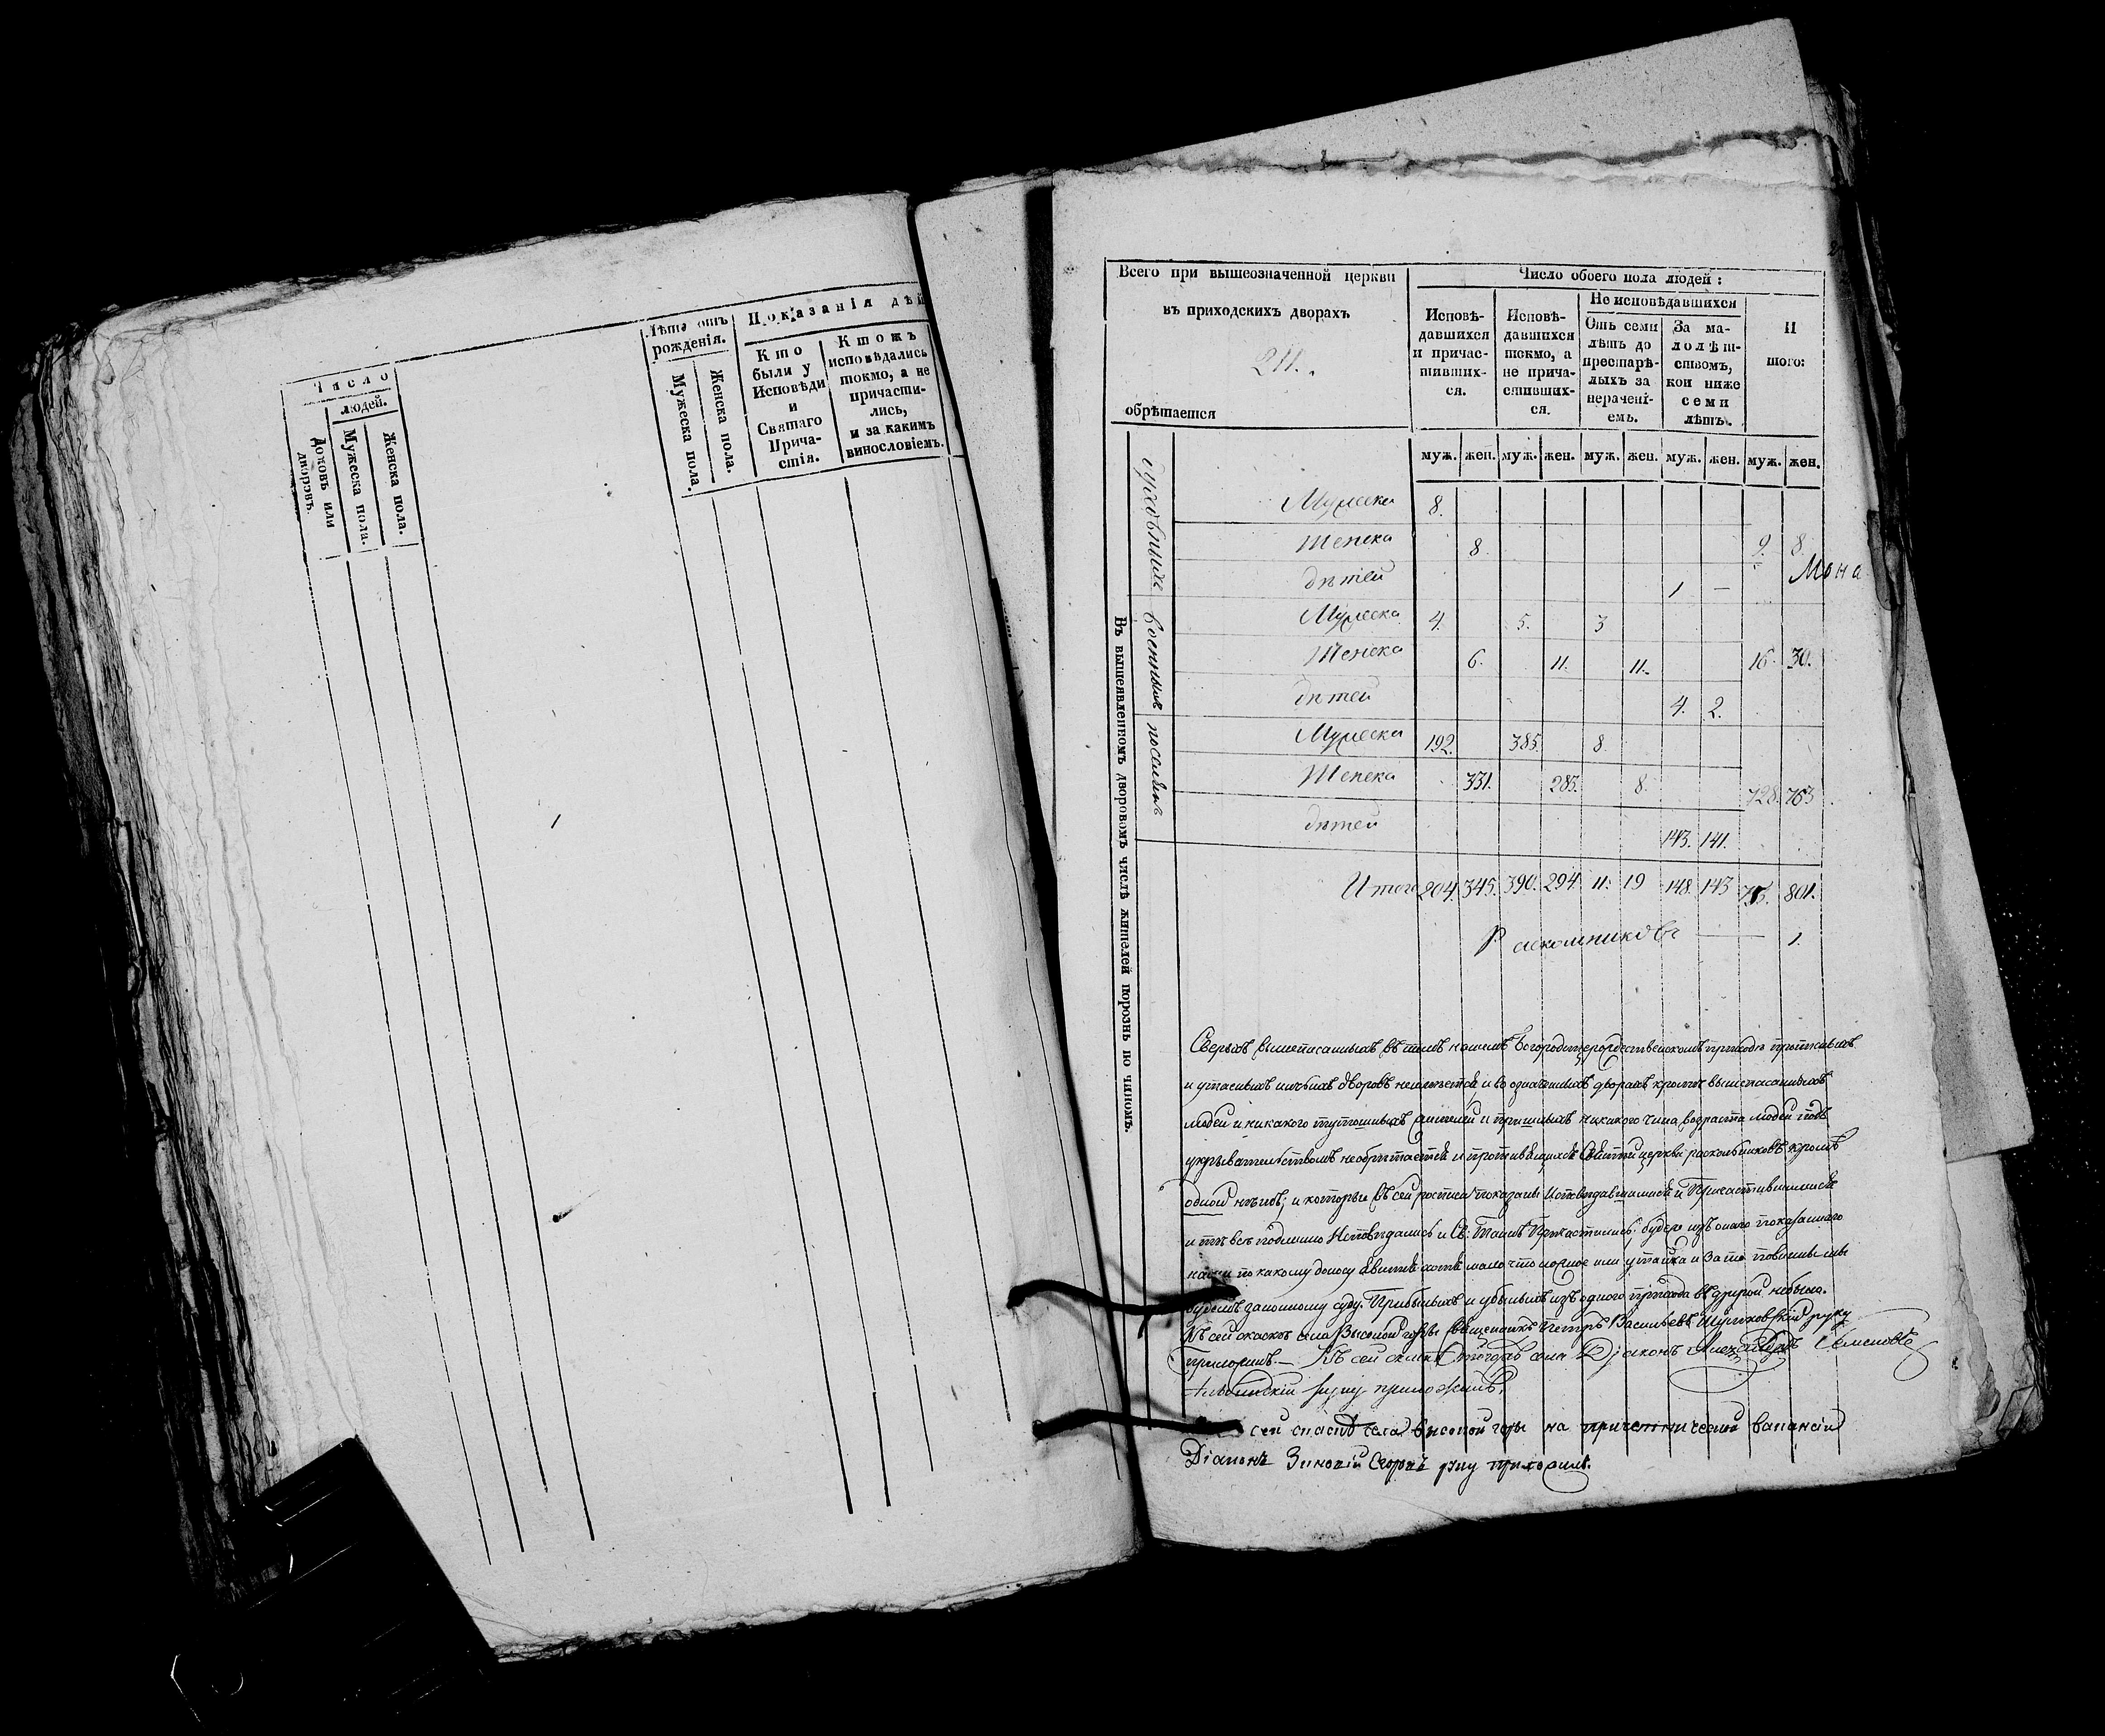 Число
людей.
Домовъ или дворовъ.
Мужеска пола.
Женска пола.
Лѣта отъ рожденія.
Мужеска пола.
Женска пола.
Показанія дѣй
Кто были у Исповѣди и Святаго Прича-стія.
Ктожъ исповѣдались токмо, а не причасти-лись, и за какимъ винословіемъ.
Всего при вышеозначенной церкви
въ приходскихъ дворахъ
211.
обрѣтается
Число обоего пола людей:
Исповѣ-давшихся и причас-тивших-ся.
Исповѣ-давшихся токмо, а не прича-стивших-ся.
Не исповѣдавшихся
Отъ семи лѣтъ до престарѣ-лыхъ за нерачені-емъ.
За ма-лолѣт-ствомъ, кои ниже семи лѣтъ.
И того:
муж. жен. муж. жен. муж. жен. муж. жен. муж. жен.
Въ вышеявленномъ дворовомъ числѣ жителей порознь по чиномъ.
духовныхъ
Мужеска 8.
Женска 8. 9. 8.
Мона
дѣтей 1 —
военныхъ
Мужеска 4. 5. 3
Женска 6. 11. 11. 16. 30.
дѣтей 4. 2.
поселянъ
Мужеска 192. 385. 8.
Женска 331. 283. 8. 728. 763
дѣтей 143. 141.
Итого 204. 345. 390. 294 11. 19 148. 143 801.
Раскольниковъ — 1.
Сверьхъ вышеписанныхъ въ томъ нашемъ Богородицерождественскомъ приходѣ
и утаенныхъ дворовъ неимѣется, и во означенныхъ дворахъ кромѣ вышеписанныхъ
людей и никакого жителей и пришлыхъ никакого чина возраста людей подъ
укрывательствомъ необрѣтается и противящихся святѣй церкви раскольниковъ кромѣ
одной нѣтъ; и которые въ сей росписи показаны Исповѣдавшимися и Причастившимися
и тѣ всѣ подлинно Исповѣдались и Св: Таинъ Причастились; буде изъ онаго показаннаго
по какому доносу явится хотя мало что ложное или утайка и за то повинны мы
будемъ законному суду. Прибылыхъ и убылыхъ изъ одного прихода въ другой небыло.
Къ сей скаскѣ села Высокой горы Священникъ Петръ Васильевъ руку
приложилъ. — Къ сей скаскѣ тогожъ села Діаконъ Александръ Семеновъ
руку приложилъ.
сей скаскѣ села Высокой горы на причетнической вакансіи
Діаконъ Зиновій Егоровъ руку приложилъ.